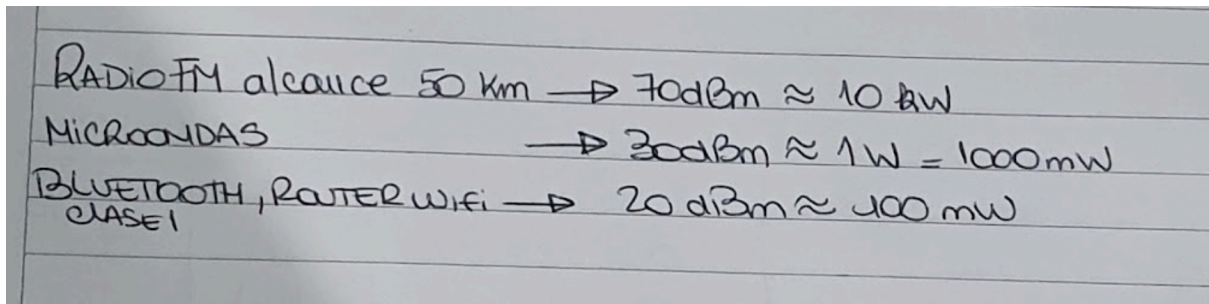 RADIO FM alcance 50 Km → 70dBm ≈ 10 kW
MICROONDAS → 30dBm ≈ 1W = 1000mW
BLUETOOTH, ROUTER Wifi → 20 dBm ≈ 100 mW
CLASE 1